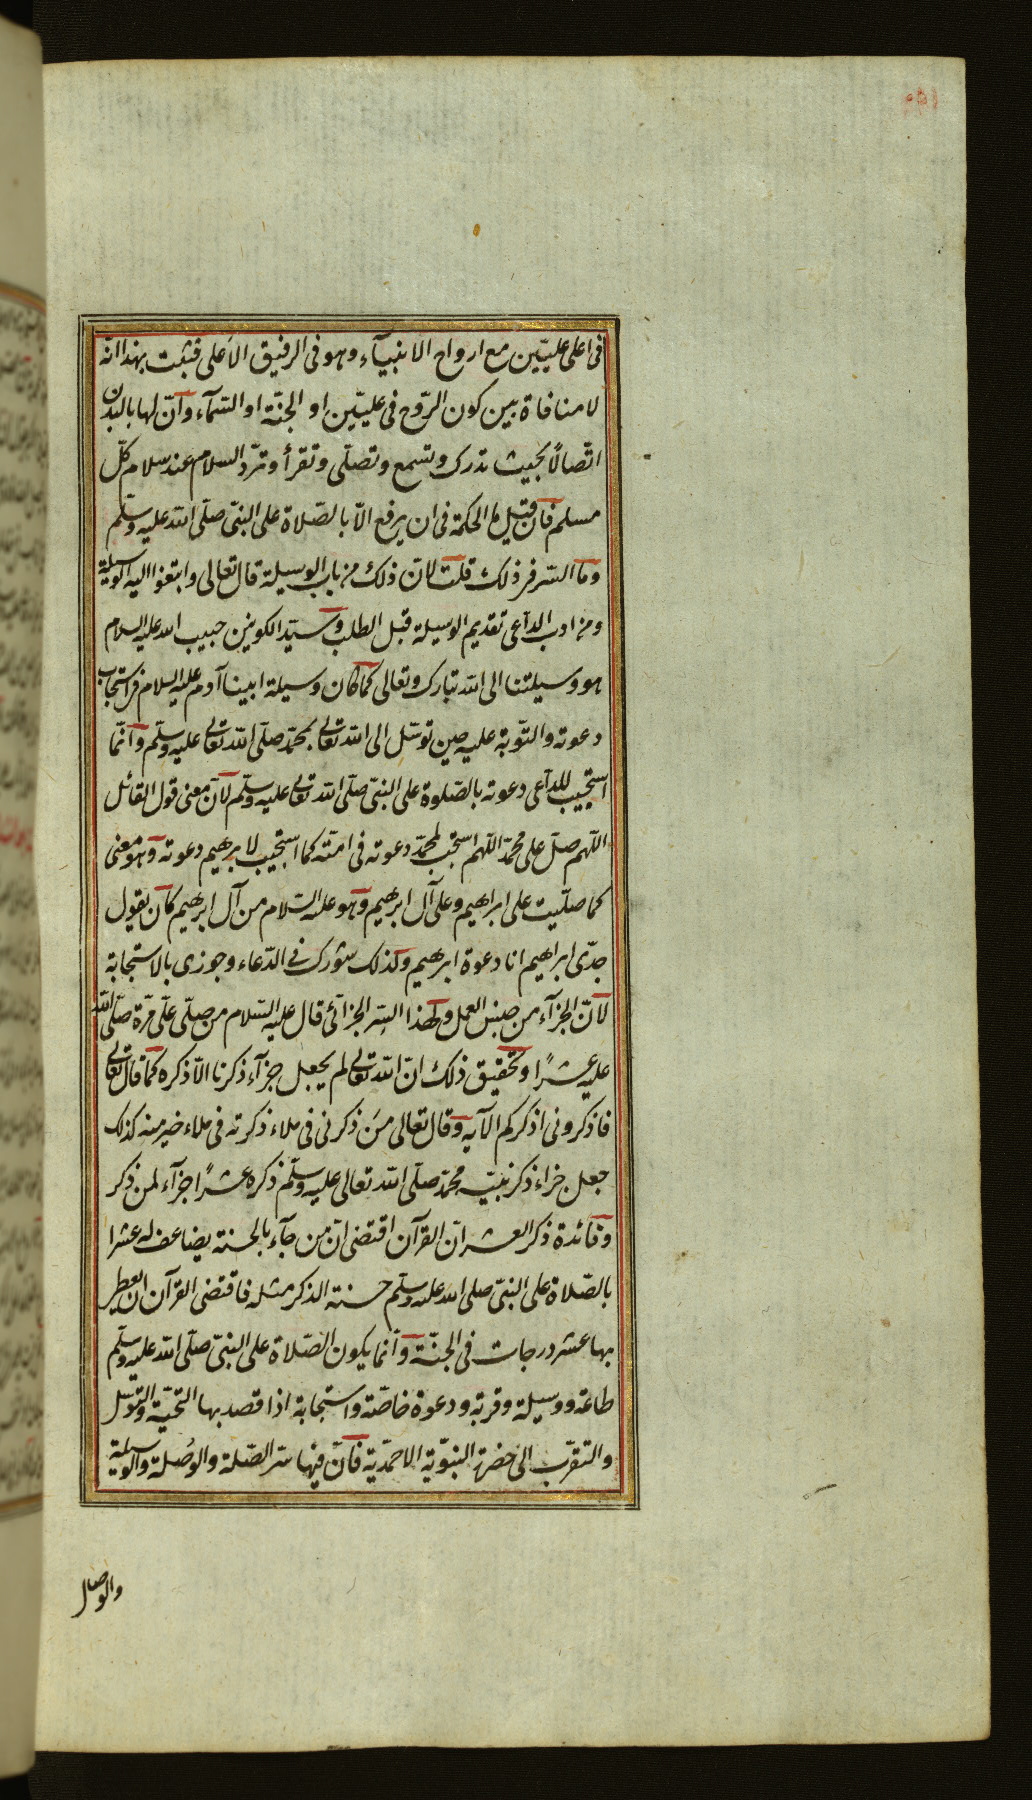 في اعلى عليّين مع ارواح الانبيآء وهو في الرفيق الأعلى فثبت بهذا انّه
لا منافاة بين كون الرّوح في عليّين او الجنّة او السّمآء وانّ لها بالبدن
اتّصالاً بحيث تدرك وتسمع وتصلّى وتقرأ وتردّ السلام عند سلام كلّ
مسلم فان قيل ما الحكمة في ان يرفع الاّ بالصّلاة على النبيّ صلّى الله عليه وسلّم
وما السّر في ذلك قلت لانّ ذلك من باب الوسيلة قال تعالى وابتغوا اليه الوسيلة
ومن ادب الداعى تقديم الوسيلة قبل الطلب وسيّد الكونين حبيب الله عليه السلام
هو وسيلتنا الى الله تبارك وتعالى كما كان وسيلة ابينا آدم عليه السلام في استجاب
دعوته والتّوبة عليه حين توسّل الى الله تعالى بمحمّد صلّى الله تعالى عليه وسلّم وانّما
استجيب للداعى دعوته بالصّلوة على النبيّ صلّى الله تعالى عليه وسلّم لانّ معنى قول القائل
اللّهم صلّ على محمّد اللّهم استجب لمحمّد دعوته في امّته كما استجيب لابرهيم دعوته وهو معنى
كما صلّيت على ابراهيم وعلى آل ابرهيم وهو عليه السّلام من آل ابرهيم كان يقول
جدّى ابراهيم انا دعوة ابرهيم وكذلك شورك في الدّعاء وجوزى بالاستجابة
لانّ الجزآء من جنس العمل ولهذا السّر الجزائى قال عليه السّلام من صلّى علىّ مرّة صلّى الله
عليه عشرًا وتحقيق ذلك انّ الله تعالى لم يجعل جزآء ذكرنا الاّ ذكره كما قال تعالى
فاذكرونى اذكركم الآيه وقال تعالى مَن ذكرنى فى ملاء ذكرته فى ملاء خير منه كذلك
جعل جزاء ذكر نبيّه محمّد صلّى الله تعالى عليه وسلّم ذكره عشرًا جزآء لمن ذكر
وفائدة ذكر العشر انّ القرآن اقتضى انّ من جآء بالحسنة يضاعف له عشرا
بالصّلاة على النبيّ صلى الله عليه وسلّم حسنة الذكر مثله فاقتضى القرآن ان
بها عشر درجات في الجنّة وانّما يكون الصّلاة على النبيّ صلّى الله عليه وسلّم
طاعة ووسيلة وقربة ودعوة خاصّة واستجابة اذا قصد بها التحيّة والتوسّل
والتقرّب الى حضرة النبوّية الاحمديّة فانّ فيها سرّ الصّلة والوُصلة والوسيلة
والوصال